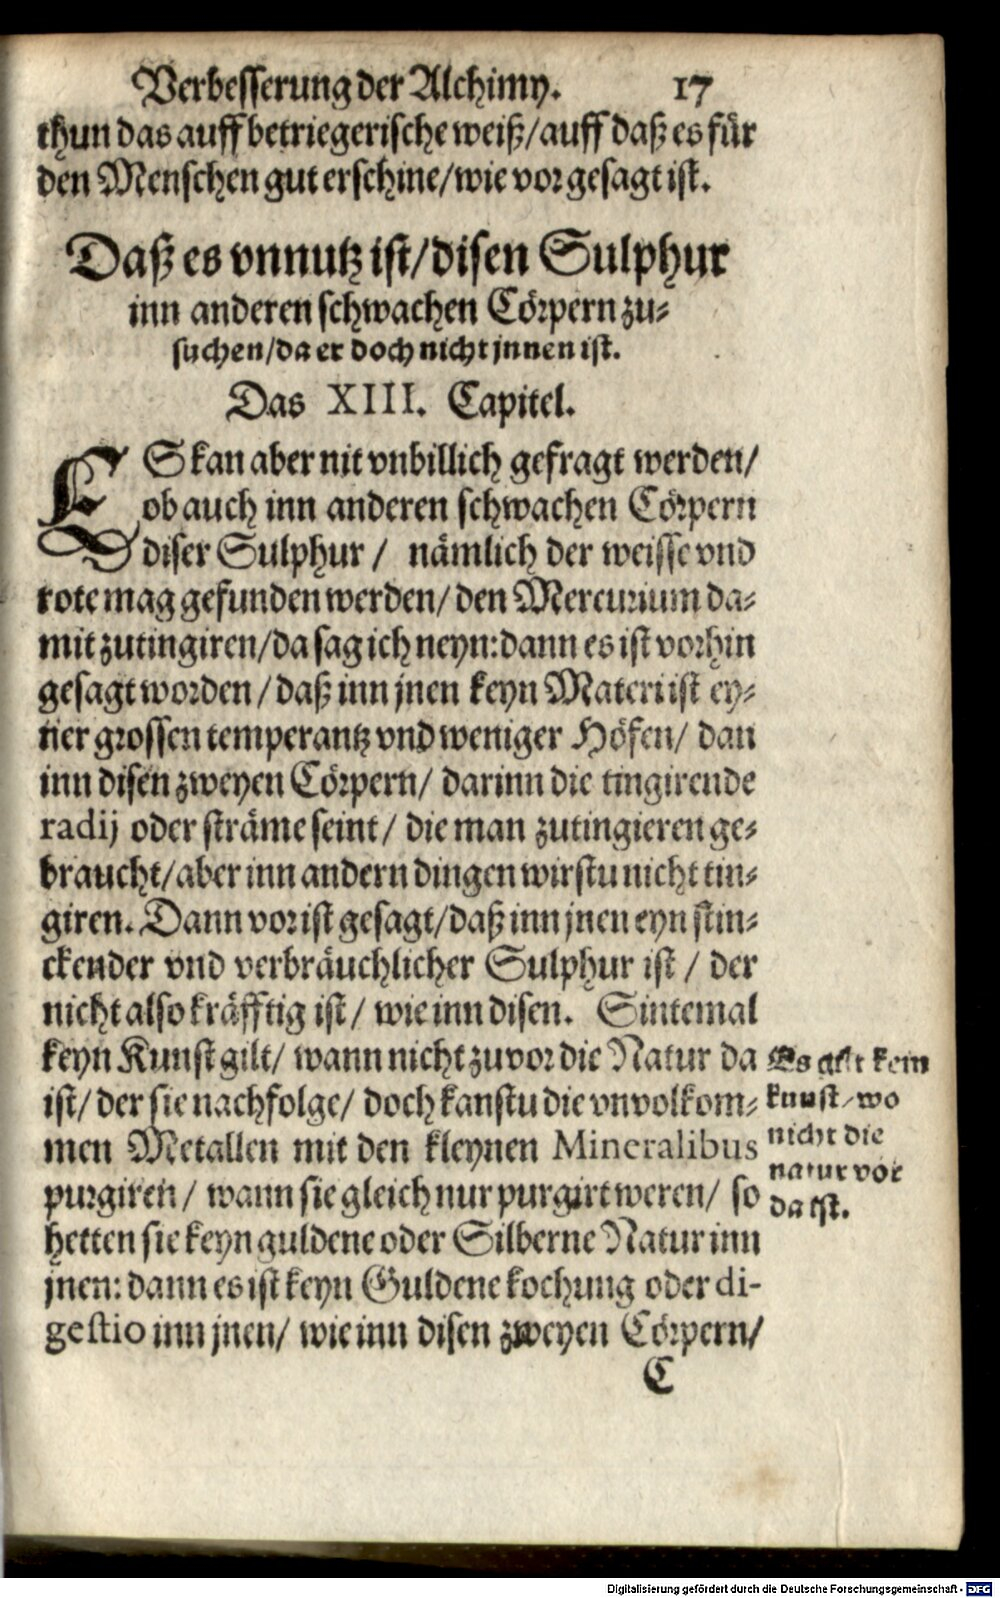 Verbesserung der Alchimy. 17
thun das auff betriegerische weiß/auff daß es für
den Menschen gut erschine/wie vor gesagt ist.
Daß es vnnutz ist/disen Sulphur
inn anderen schwachen Cörpern zu-
suchen/da er doch nicht jnnen ist.
Das XIII. Capitel.
ES kan aber nit vnbillich gefragt werden/
ob auch inn anderen schwachen Cörpern
diser Sulphur / nämlich der weisse vnd
rote mag gefunden werden/ den Mercurium da-
mit zutingiren/da sag ich neyn: dann es ist vorhin
gesagt worden / daß inn jnen keyn Materi ist ey-
ner grossen temperantz vnd weniger Höfen/ dan
inn disen zweyen Cörpern/ darinn die tingirende
radij oder sträme seint/ die man zutingieren ge-
braucht/aber inn andern dingen wirstu nicht tin-
giren. Dann vor ist gesagt/daß inn jnen eyn stin-
ckender vnd verbräuchlicher Sulphur ist / der
nicht also kräfftig ist/ wie inn disen. Sintemal
keyn Kunst gilt/ wann nicht zuvor die Natur da
ist/ der sie nachfolge/ doch kanstu die vnvolkom-
men Metallen mit den kleynen Mineralibus
purgiren/ wann sie gleich nur purgirt weren/ so
hetten sie keyn guldene oder Silberne Natur inn
jnen: dann es ist keyn Guldene kochung oder di-
gestio inn jnen/ wie inn disen zweyen Cörpern/
C
Es gilt kein
kunst/wo
nicht die
natur vor
da ist.
Digitalisierung gefördert durch die Deutsche Forschungsgemeinschaft - DFG